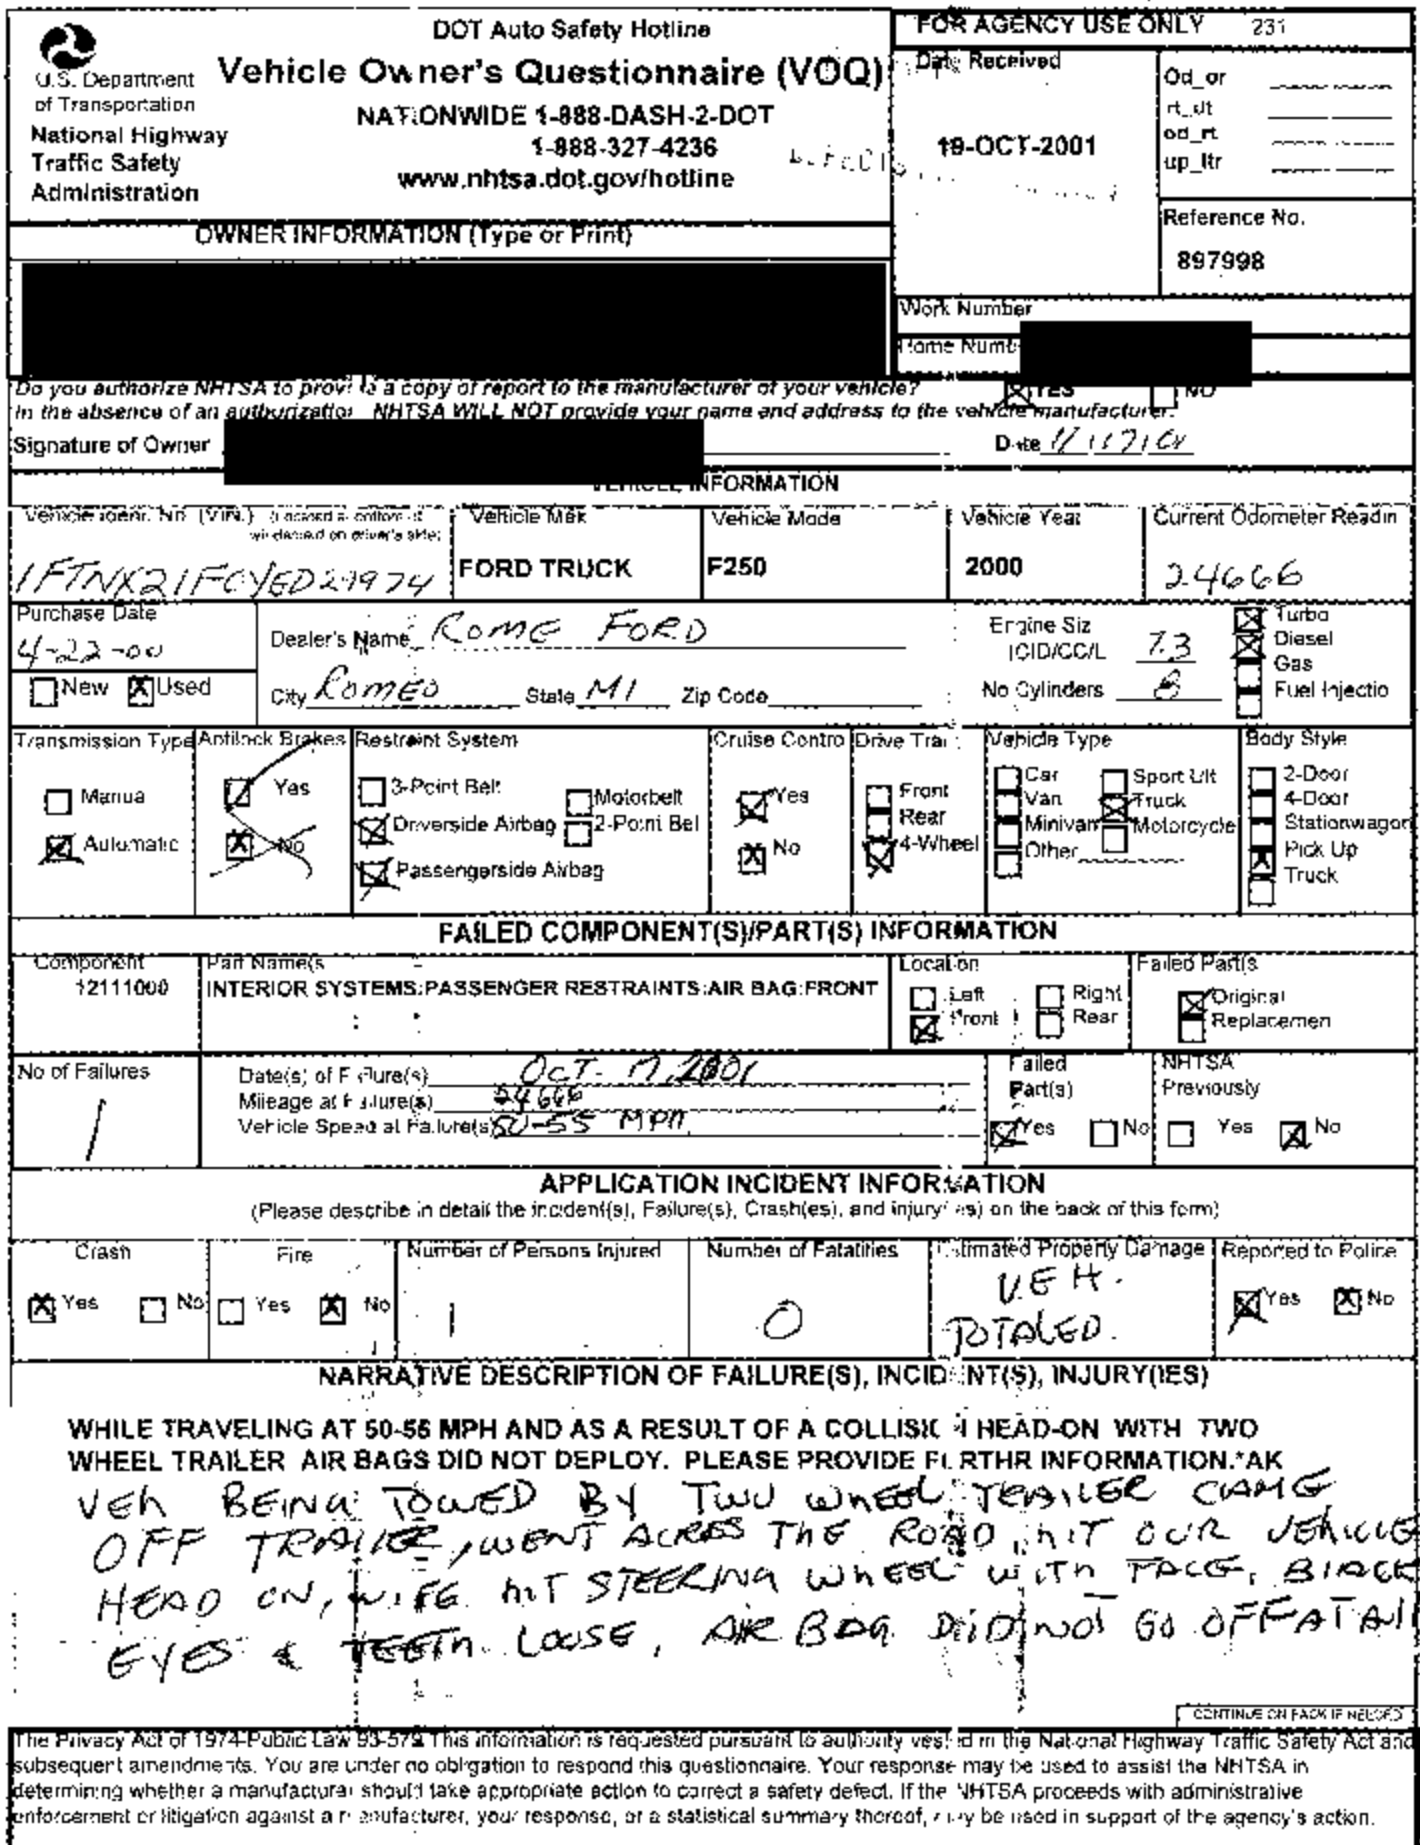 DOT Auto Safety Hotline
Vehicle Owner's Questionnaire (VOQ)
NATIONWIDE 1-888-DASH-2-DOT
1-888-327-4236
www.nhtsa.dot.gov/hotline
U.S. Department
of Transportation
National Highway
Traffic Safety
Administration
FOR AGENCY USE ONLY 231
Date Received
19-OCT-2001
Od_or
rt_dt
od_rt
up_ltr
Reference No.
897998
OWNER INFORMATION (Type or Print)
Work Number
Home Numb
Do you authorize NHTSA to provide a copy of report to the manufacturer of your vehicle? YES NO
In the absence of an authorization NHTSA WILL NOT provide your name and address to the vehicle manufacturer.
Signature of Owner Date
VEHICLE INFORMATION
Vehicle Ident. No. (VIN.)
Vehicle Mak Vehicle Mode Vehicle Year Current Odometer Readin
FORD TRUCK F250 2000 24666
Purchase Date
4-22-00
New Used
Dealer's Name ROME FORD
City ROMEO State MI Zip Code
Engine Siz
(CID/CC/L 7.3
No Cylinders 8
Turbo
Diesel
Gas
Fuel Injectio
Transmission Type Antilock Brakes Restraint System Cruise Contro Drive Trai Vehicle Type Body Style
Manua
Automatic
Yes
No
3-Point Belt
Motorbelt
Driverside Airbag
2-Point Bel
Passengerside Airbag
Yes
No
Front
Rear
4-Wheel
Car
Van
Minivan
Other
Sport Ult
Truck
Motorcycle
2-Door
4-Door
Stationwagon
Pick Up
Truck
FAILED COMPONENT(S)/PART(S) INFORMATION
Component
12111000
Part Name(s
INTERIOR SYSTEMS:PASSENGER RESTRAINTS:AIR BAG:FRONT
Location
Left Right
Front Rear
Failed Part(s
Original
Replacemen
No of Failures
1
Date(s) of Failure(s) OCT. 17, 2001
Mileage at Failure(s) 24666
Vehicle Speed at Failure(s) 50-55 MPH
Failed
Part(s)
Yes No
NHTSA
Previously
Yes No
APPLICATION INCIDENT INFORMATION
(Please describe in detail the incident(s), Failure(s), Crash(es), and injury(ies) on the back of this form)
Crash Fire Number of Persons Injured Number of Fatalities Estimated Property Damage Reported to Police
Yes No Yes No 1 0 VEH. TOTALED. Yes No
NARRATIVE DESCRIPTION OF FAILURE(S), INCIDENT(S), INJURY(IES)
WHILE TRAVELING AT 50-55 MPH AND AS A RESULT OF A COLLISION HEAD-ON WITH TWO
WHEEL TRAILER AIR BAGS DID NOT DEPLOY. PLEASE PROVIDE FURTHR INFORMATION.*AK
VEH BEING TOWED BY TWO WHEEL TRAILER CAME
OFF TRAILER, WENT ACRES THE ROAD, HIT OUR VEHICLE
HEAD ON, WIFE HIT STEERING WHEEL WITH FACE, BLACK
EYES & TEETH LOOSE, AIR BAG DID NOT GO OFF AT ALL
CONTINUE ON BACK IF NEEDED
The Privacy Act of 1974-Public Law 93-579 This information is requested pursuant to authority vested in the National Highway Traffic Safety Act and
subsequent amendments. You are under no obligation to respond this questionnaire. Your response may be used to assist the NHTSA in
determining whether a manufacturer should take appropriate action to correct a safety defect. If the NHTSA proceeds with administrative
enforcement or litigation against a manufacturer, your response, or a statistical summary thereof, may be used in support of the agency's action.